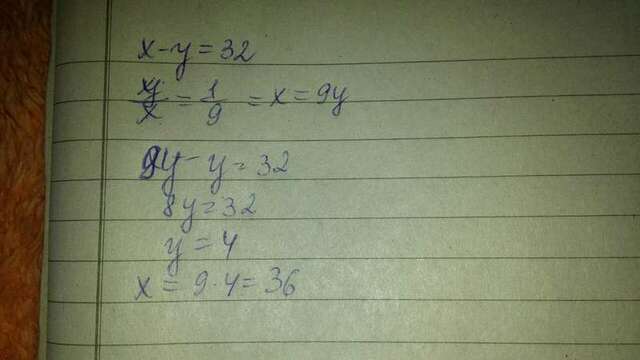 x-y=32
y/x=1/9=x=9y
9y-y=32
8y=32
y=4
x=9·4=36